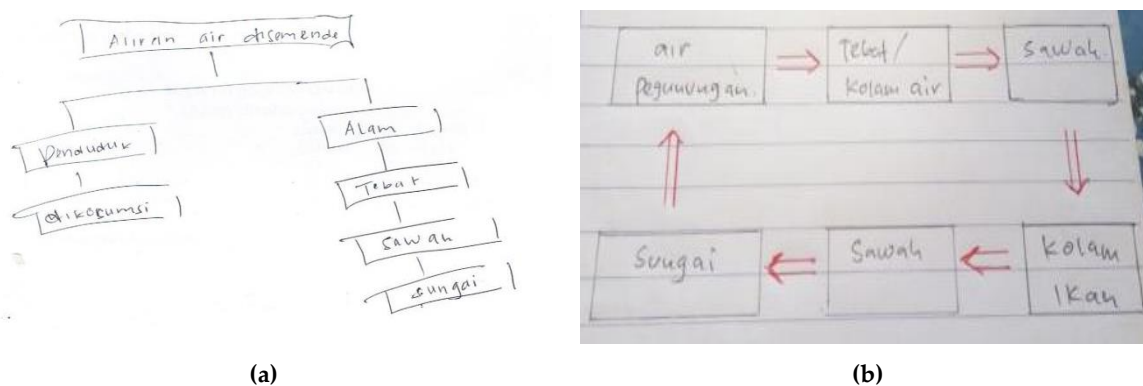 Aliran air disemende
Penduduk
dikosumsi
Alam
Tebat
Sawah
Sungai
(a)
air
pegunungan.
Tebat/
kolam air
Sawah
Kolam
Ikan
Sawah
Sungai
(b)